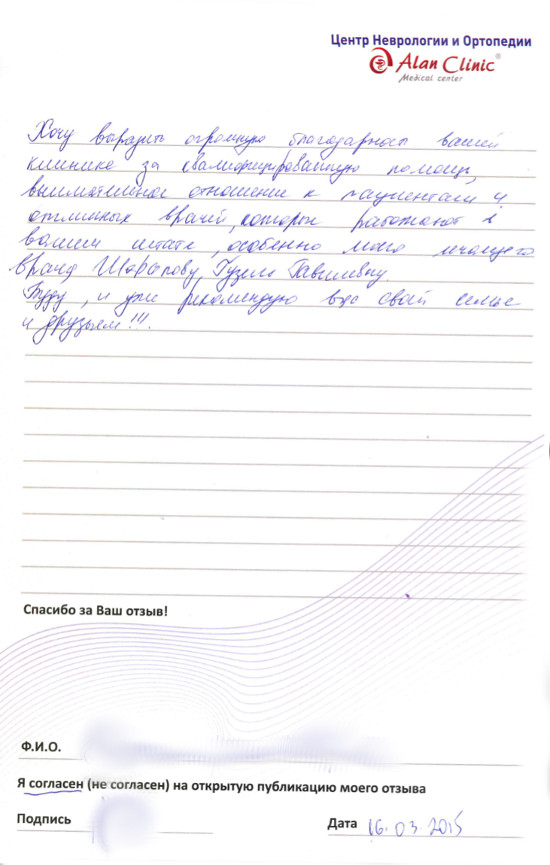 Центр Неврологии и Ортопедии
Alan Clinic®
Medical center
Хочу выразить огромную благодарность вашей
клинике за квалифицированную помощь,
внимательное отношение к пациентам и
отличных врачей, которые работают в
вашем штате, особенно моего лечащего
врача Шарапову Гузель
Буду, и уже рекомендую вас своей семье
и друзьям!!!.
Спасибо за Ваш отзыв!
Ф.И.О.
Я согласен (не согласен) на открытую публикацию моего отзыва
Подпись
Дата 16.03.2015